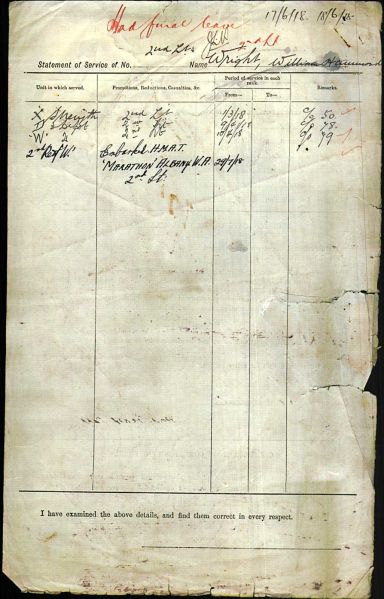 Had final leave 17/6/18. 18/6/18
2nd Lt
Statement of Service of No. Name Wright, William
Unit in which served. Promotions, Reductions, Casualties, &c. Period of service in each rank. Remarks.
From— To—
X Strength 2nd Lt 1/3/18 50
D Depot 2nd Lt 78
"W" 2nd Lt 79
2nd Rft "W". Embarked H.M.A.T.
"MARATHON" ALBANY W.A. 29/7/18
2nd Lt.
I have examined the above details, and find them correct in every respect.